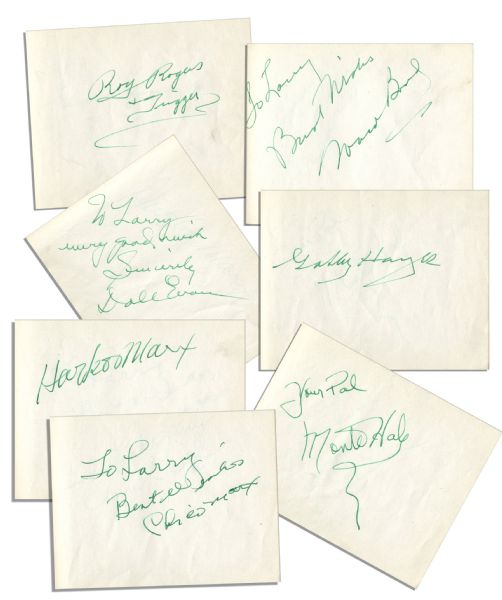 Roy Rogers
+ Trigger
To Larry
Best Wishes
Ward Bond
To Larry
every good wish
Sincerely
Dale Evans
Gabby Hayes
Harpo Marx
Your Pal
Monte Hale
To Larry
Best Wishes
Chico Marx